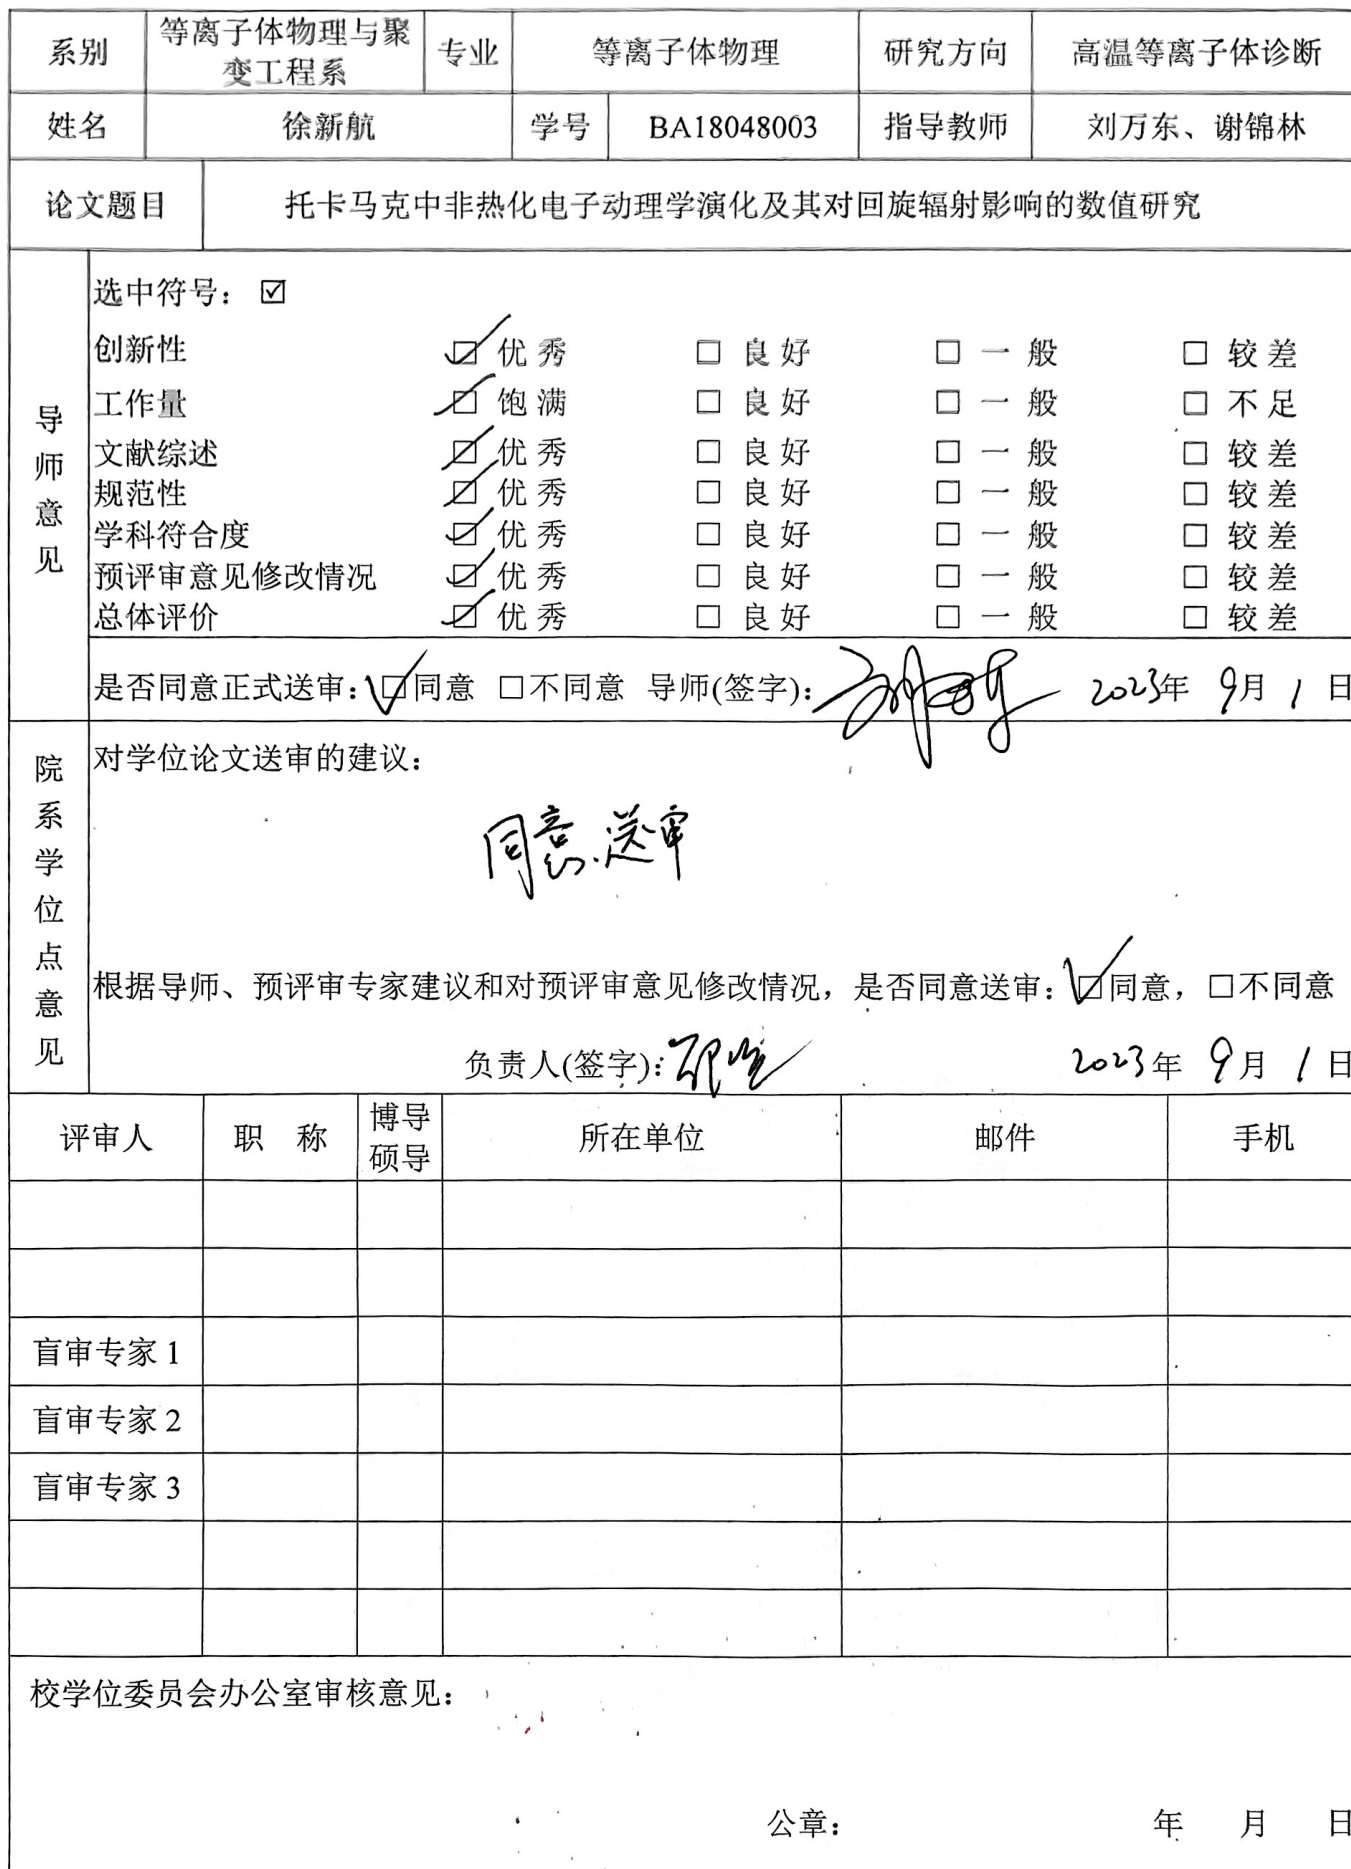 系别 等离子体物理与聚变工程系 专业 等离子体物理 研究方向 高温等离子体诊断
姓名 徐新航 学号 BA18048003 指导教师 刘万东、谢锦林
论文题目 托卡马克中非热化电子动理学演化及其对回旋辐射影响的数值研究
导师意见
选中符号：☑
创新性 ☑优秀 □良好 □一般 □较差
工作量 ☑饱满 □良好 □一般 □不足
文献综述 ☑优秀 □良好 □一般 □较差
规范性 ☑优秀 □良好 □一般 □较差
学科符合度 ☑优秀 □良好 □一般 □较差
预评审意见修改情况 ☑优秀 □良好 □一般 □较差
总体评价 ☑优秀 □良好 □一般 □较差
是否同意正式送审：☑同意 □不同意 导师(签字)： 2023年 9月 1日
院系学位点意见
对学位论文送审的建议：
同意送审
根据导师、预评审专家建议和对预评审意见修改情况，是否同意送审：☑同意，□不同意
负责人(签字)： 2023年 9月 1日
评审人 职 称 博导硕导 所在单位 邮件 手机
盲审专家 1
盲审专家 2
盲审专家 3
校学位委员会办公室审核意见：
公章： 年 月 日